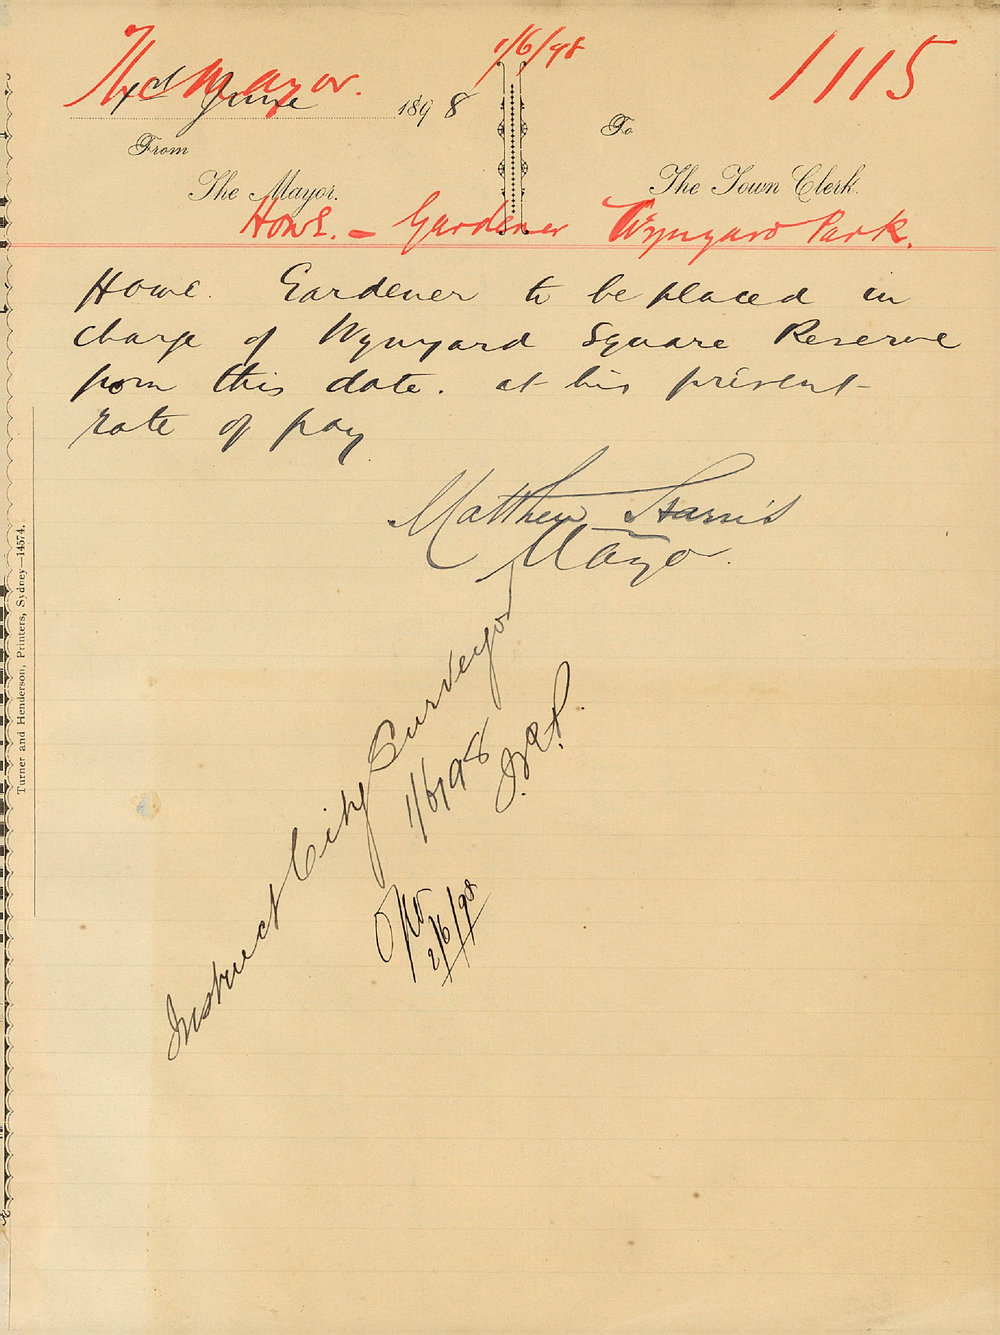 The Mayor. 1/6/98 1115
June 1898
From To
The Mayor. The Town Clerk.
Howe. - Gardener Wynyard Park.
Howe. Gardener to be placed in
charge of Wynyard Square Reserve
from this date. at his present
rate of pay
Matthew Harris
Mayor.
Instruct City Surveyor
1/6/98
2/6/98
Turner and Henderson, Printers, Sydney—14574.